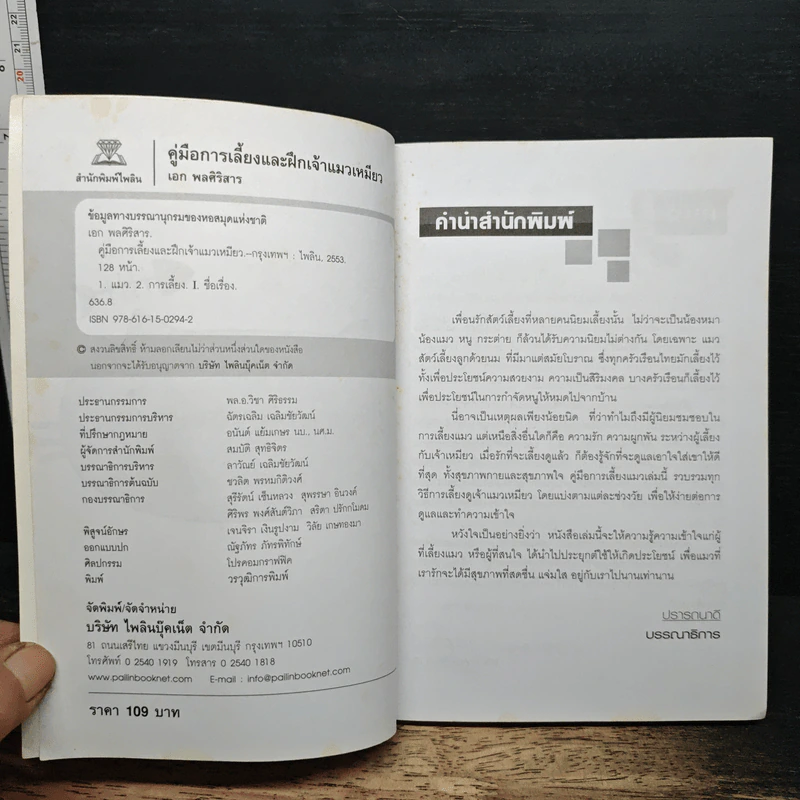 สำนักพิมพ์ไพลิน
คู่มือการเลี้ยงและฝึกเจ้าแมวเหมียว
เอก พลศิริสาร
ข้อมูลทางบรรณานุกรมของหอสมุดแห่งชาติ
เอก พลศิริสาร.
คู่มือการเลี้ยงและฝึกเจ้าแมวเหมียว.--กรุงเทพฯ : ไพลิน, 2553.
128 หน้า.
1. แมว. 2. การเลี้ยง. I. ชื่อเรื่อง.
636.8
ISBN 978-616-15-0294-2
© สงวนลิขสิทธิ์ ห้ามลอกเลียนไม่ว่าส่วนหนึ่งส่วนใดของหนังสือ
นอกจากจะได้รับอนุญาตจาก บริษัท ไพลินบุ๊คเน็ต จำกัด
ประธานกรรมการ พล.อ.วิชา ศิริธรรม
ประธานกรรมการบริหาร ฉัตรเฉลิม เฉลิมชัยวัฒน์
ที่ปรึกษากฎหมาย อนันต์ แย้มเกษร นบ., นศ.ม.
ผู้จัดการสำนักพิมพ์ สมบัติ สุทธิจิตร
บรรณาธิการบริหาร ลาวัณย์ เฉลิมชัยวัฒน์
บรรณาธิการต้นฉบับ ชวลิต พรหมกิติวงศ์
กองบรรณาธิการ สุรีรัตน์ เซ็นหลวง สุพรรษา อินวงค์
ศิริพร พงศ์สันติวิภา สริตา ปรึกกโมดม
พิสูจน์อักษร เจนจิรา เงินรูปงาม วิลัย เกษทองมา
ออกแบบปก ณัฐภัทร ภัทรพิทักษ์
ศิลปกรรม โปรคอมกราฟฟิค
พิมพ์ วรวุฒิการพิมพ์
จัดพิมพ์/จัดจำหน่าย
บริษัท ไพลินบุ๊คเน็ต จำกัด
81 ถนนเสรีไทย แขวงมีนบุรี เขตมีนบุรี กรุงเทพฯ 10510
โทรศัพท์ 0 2540 1919 โทรสาร 0 2540 1818
www.pailinbooknet.com E-mail : info@pailinbooknet.com
ราคา 109 บาท
คำนำสำนักพิมพ์
เพื่อนรักสัตว์เลี้ยงที่หลายคนนิยมเลี้ยงนั้น ไม่ว่าจะเป็นน้องหมา
น้องแมว หนู กระต่าย ก็ล้วนได้รับความนิยมไม่ต่างกัน โดยเฉพาะ แมว
สัตว์เลี้ยงลูกด้วยนม ที่มีมาแต่สมัยโบราณ ซึ่งทุกครัวเรือนไทยมักเลี้ยงไว้
ทั้งเพื่อประโยชน์ความสวยงาม ความเป็นสิริมงคล บางครัวเรือนก็เลี้ยงไว้
เพื่อประโยชน์ในการกำจัดหนูให้หมดไปจากบ้าน
นี่อาจเป็นเหตุผลเพียงน้อยนิด ที่ว่าทำไมถึงมีผู้นิยมชมชอบใน
การเลี้ยงแมว แต่เหนือสิ่งอื่นใดก็คือ ความรัก ความผูกพัน ระหว่างผู้เลี้ยง
กับเจ้าแมวเหมียว เมื่อรักที่จะเลี้ยงดูแล้ว ก็ต้องรู้จักที่จะดูแลเอาใจใส่เขาให้ดี
ที่สุด ทั้งสุขภาพกายและสุขภาพใจ คู่มือการเลี้ยงแมวเล่มนี้ รวบรวมทุก
วิธีการเลี้ยงดูเจ้าแมวเหมียว โดยแบ่งตามแต่ละช่วงวัย เพื่อให้ง่ายต่อการ
ดูแลและทำความเข้าใจ
หวังใจเป็นอย่างยิ่งว่า หนังสือเล่มนี้จะให้ความรู้ความเข้าใจแก่ผู้
ที่เลี้ยงแมว หรือผู้ที่สนใจ ได้นำไปประยุกต์ใช้ให้เกิดประโยชน์ เพื่อแมวที่
เรารักจะได้มีสุขภาพที่สดชื่น แจ่มใส อยู่กับเราไปนานเท่านาน
ปรารถนาดี
บรรณาธิการ